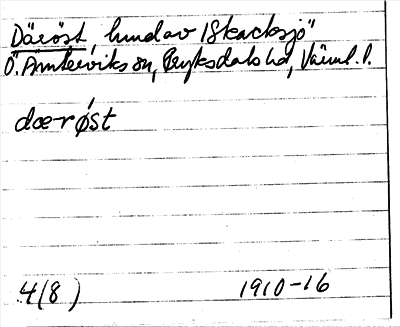 Däröst, lund av Skacksjö
Ö. Ämterviks sn, Fryksdals hd, Värml. l.
dœ-røst
4(8)
1910-16